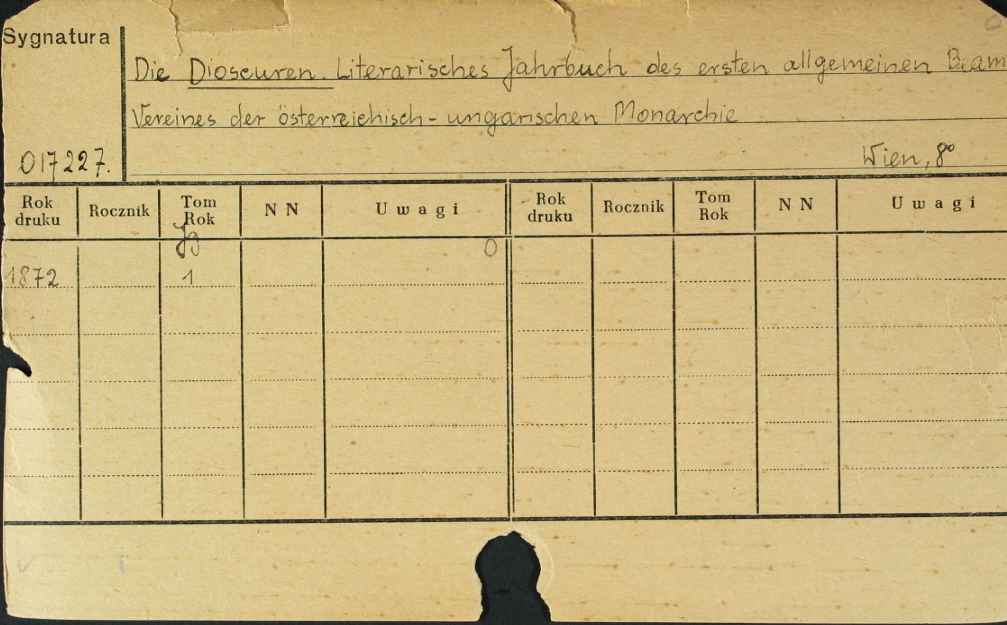 Sygnatura
Die Dioscuren. Literarisches Jahrbuch des ersten allgemeinen Beam
Vereines der österreichisch-ungarischen Monarchie
017227.
Wien, 8°
Rok druku Rocznik Tom Rok NN Uwagi Rok druku Rocznik Tom Rok NN Uwagi
Jg 0
1872 1